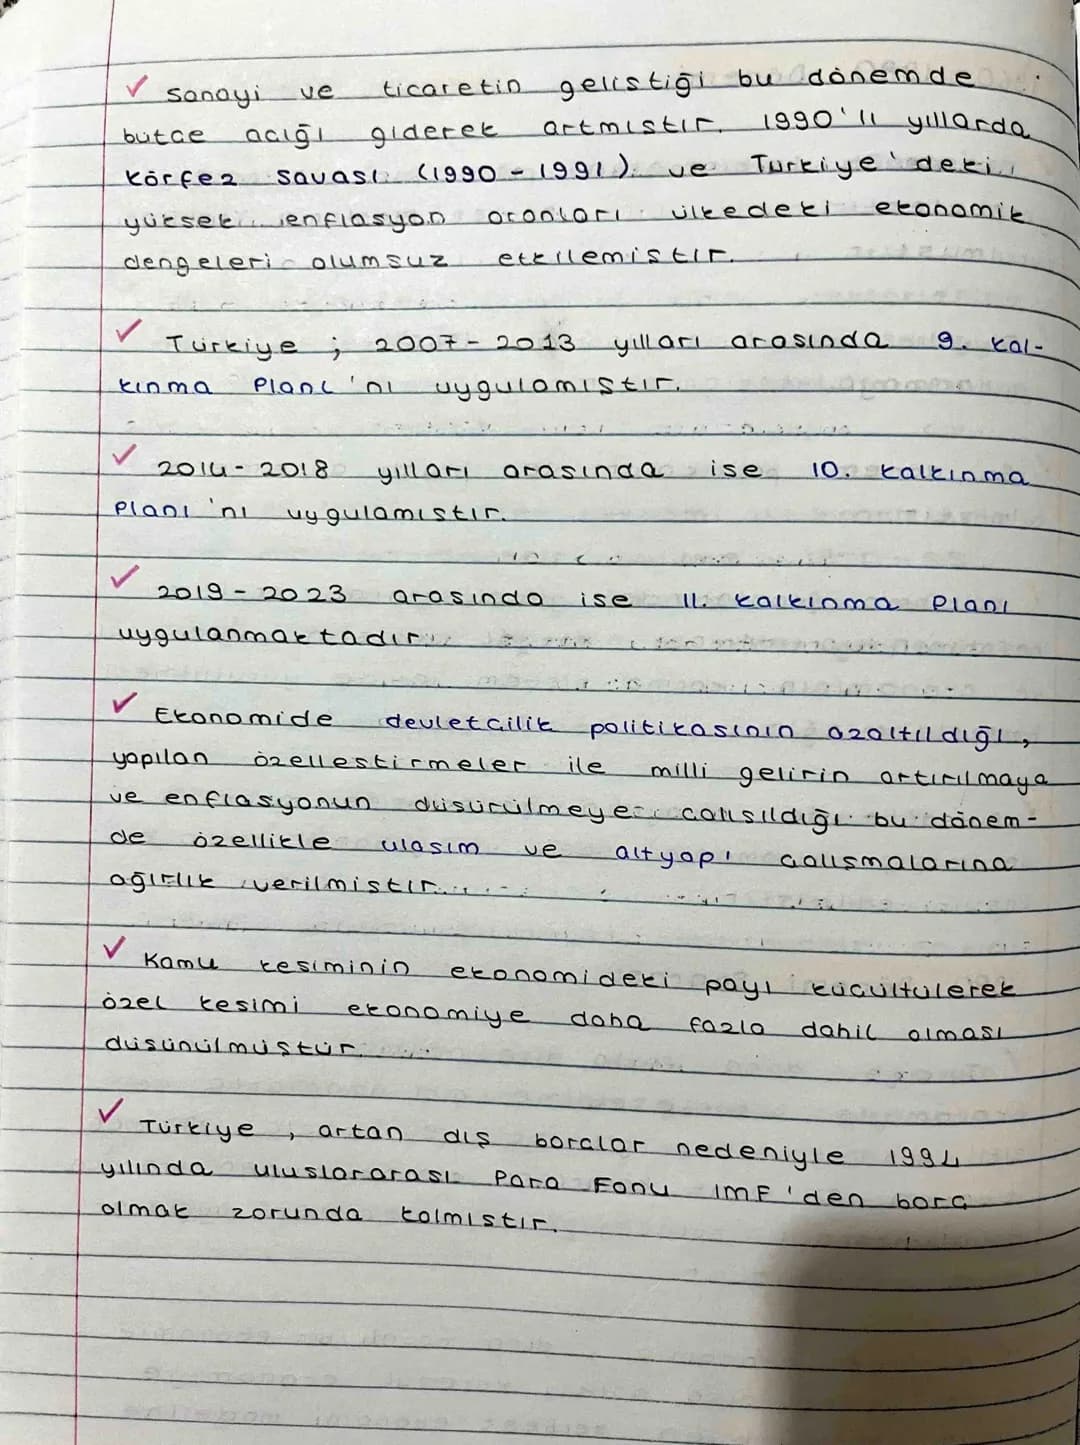 ✓ Sanayi ve ticaretin geliştiği bu dönemde
bütçe açığı giderek artmıştır. 1990'lı yıllarda
Körfez Savaşı (1990 - 1991) ve Türkiye'deki
yüksek enflasyon oranları ülkedeki ekonomik
dengeleri olumsuz etkilemiştir.
✓ Türkiye ; 2007 - 2013 yılları arasında 9. Kal-
kınma Planı'nı uygulamıştır.
✓ 2014 - 2018 yılları arasında ise 10. Kalkınma
Planı'nı uygulamıştır.
✓ 2019 - 2023 arasında ise 11. Kalkınma Planı
uygulanmaktadır.
✓ Ekonomide devletçilik politikasının azaltıldığı,
yapılan özelleştirmeler ile milli gelirin artırılmaya
ve enflasyonun düşürülmeye çalışıldığı bu dönem-
de özellikle ulaşım ve altyapı çalışmalarına
ağırlık verilmiştir.
✓ Kamu kesiminin ekonomideki payı küçültülerek
özel kesimi ekonomiye daha fazla dahil olması
düşünülmüştür.
✓ Türkiye , artan dış borçlar nedeniyle 1994
yılında uluslararası Para Fonu IMF'den borç
almak zorunda kalmıştır.